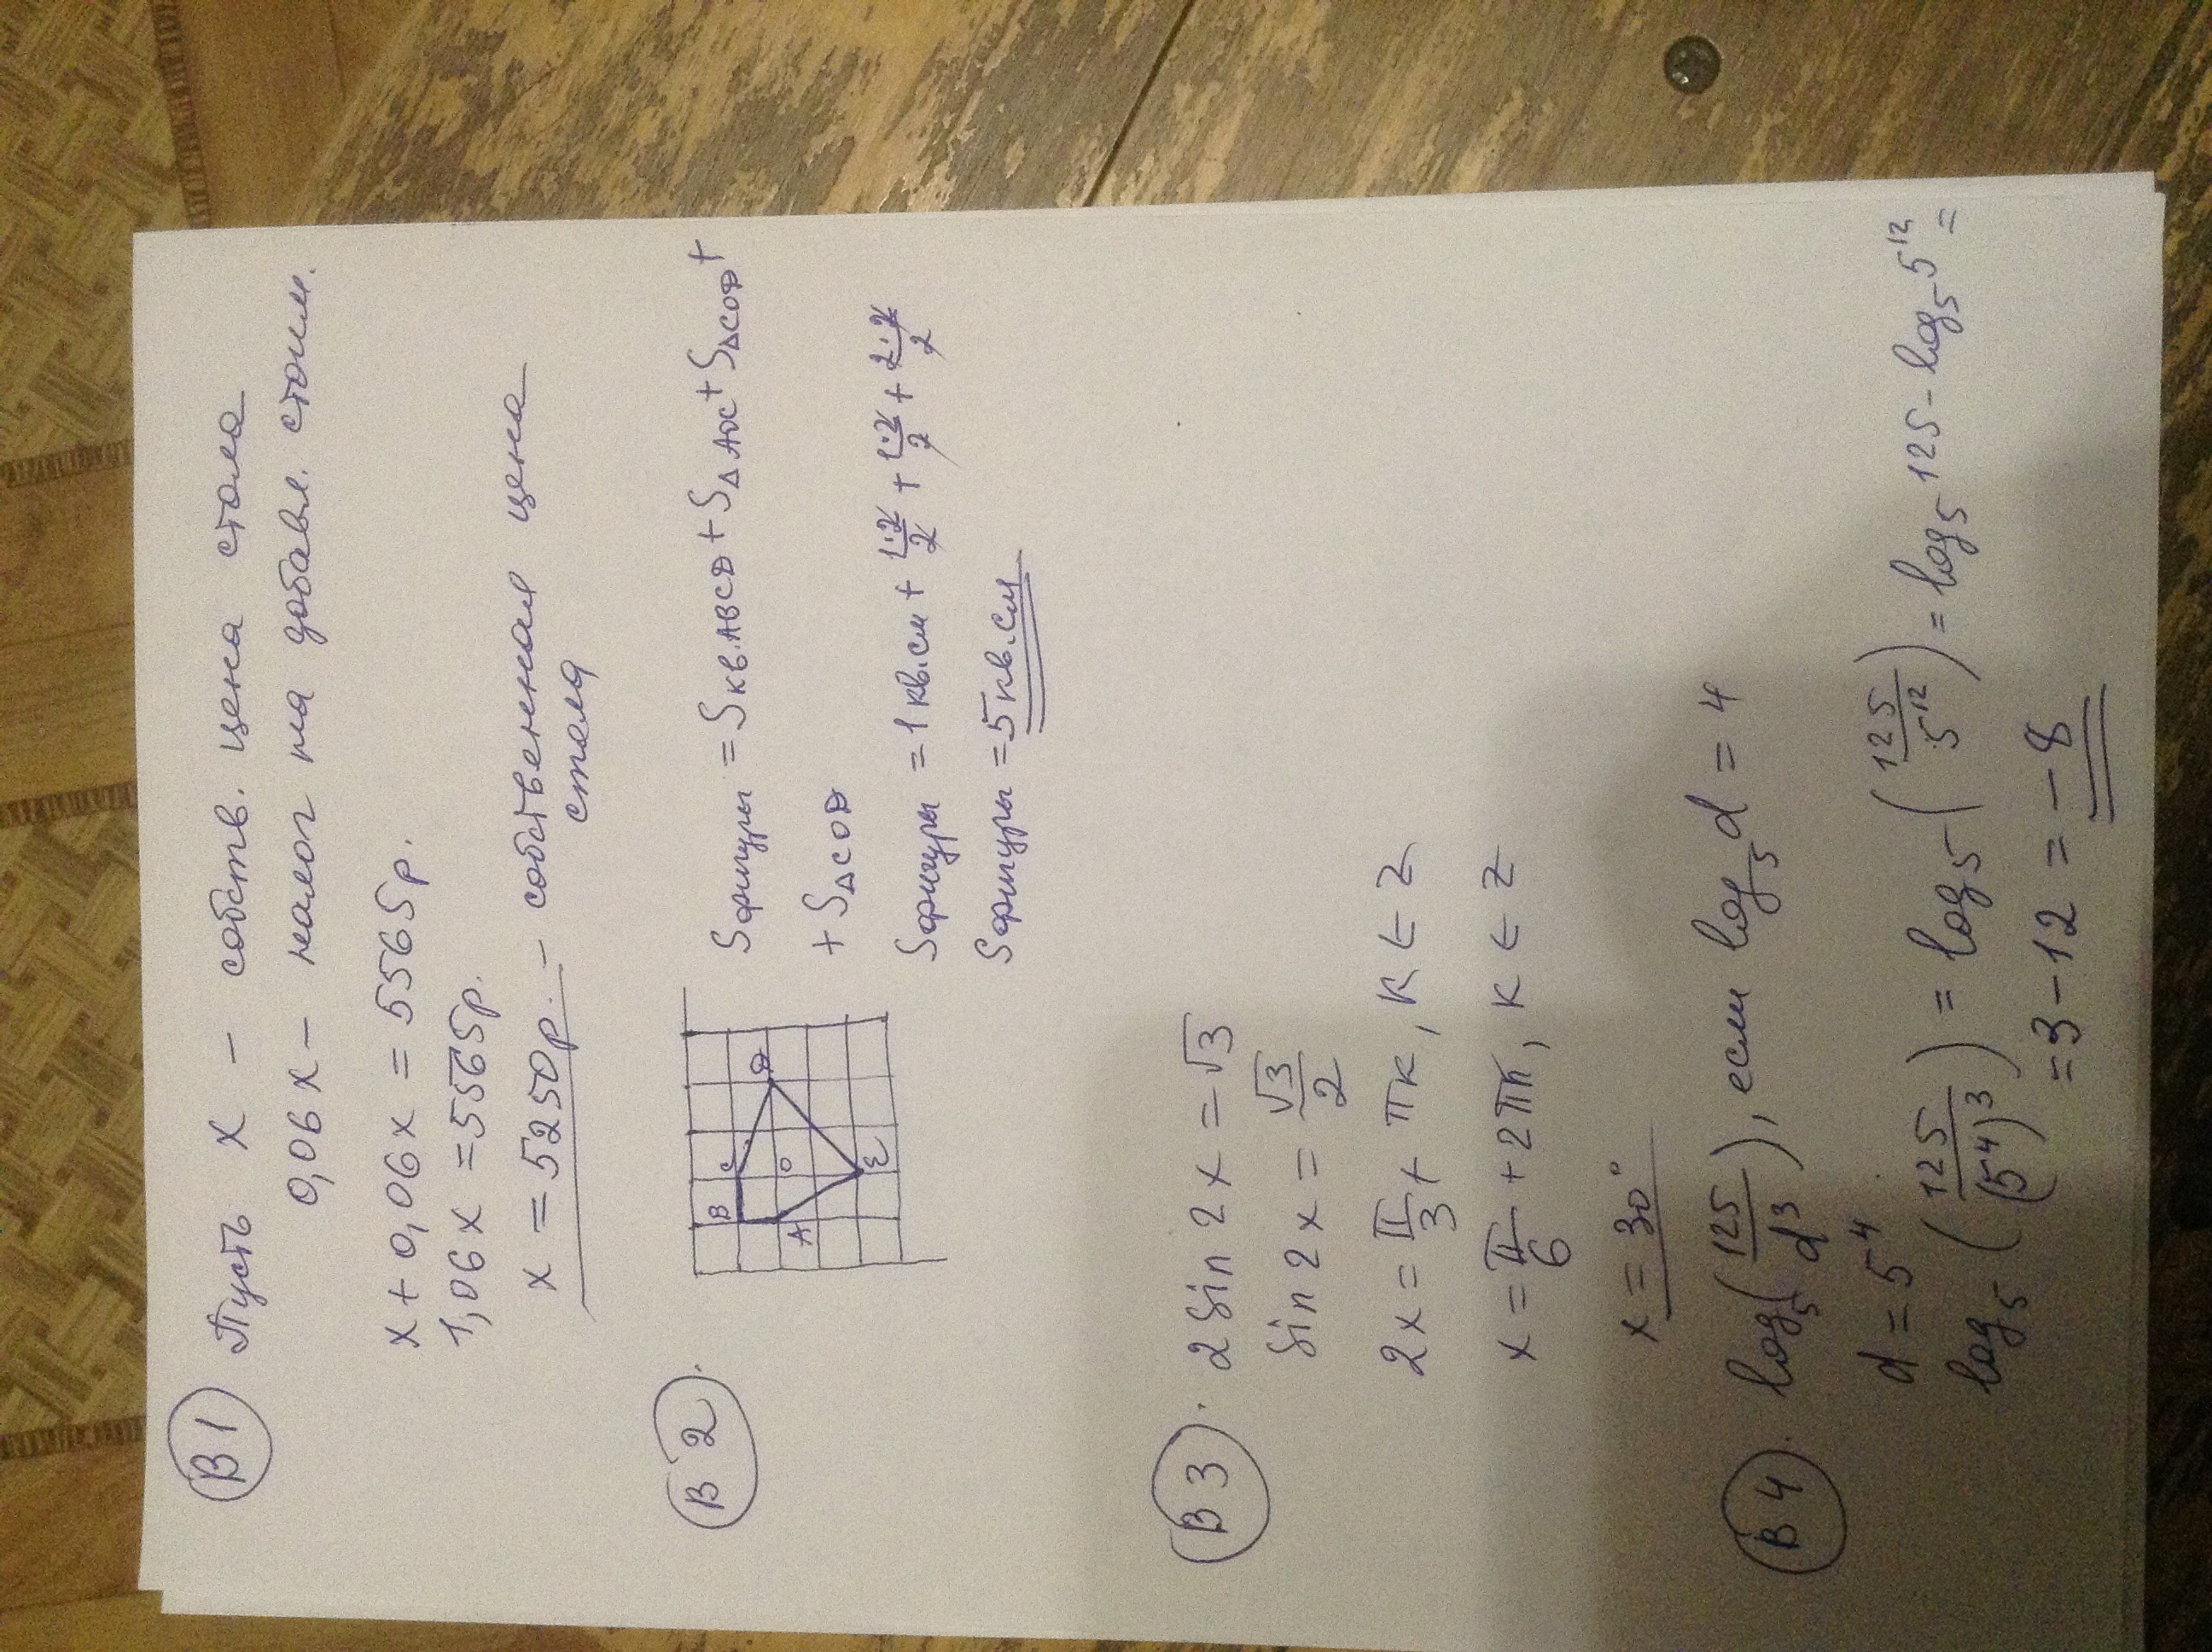 В1 Пусть x – собств. цена стола
0,06x – налог на добавл. стоим.
x + 0,06x = 5565р.
1,06x = 5565р.
x = 5250р. – собственная цена
стола
В2.
B C D A O E
Sфигуры = Sкв.ABCD + S△AOC + S△COD +
+ S△COD
Sфигуры = 1кв.см + 1·2/2 + 1·2/2 + 2·2/2
Sфигуры = 5кв.см
В3. 2 sin 2x = √3
sin 2x = √3/2
2x = π/3 + πk, k ∈ z
x = π/6 + 2πk, k ∈ z
x = 30°
В4. log₅(125/d³), если log₅d = 4
d = 5⁴
log₅(125/(5⁴)³) = log₅(125/5¹²) = log₅125 - log₅5¹² =
= 3 - 12 = - 8